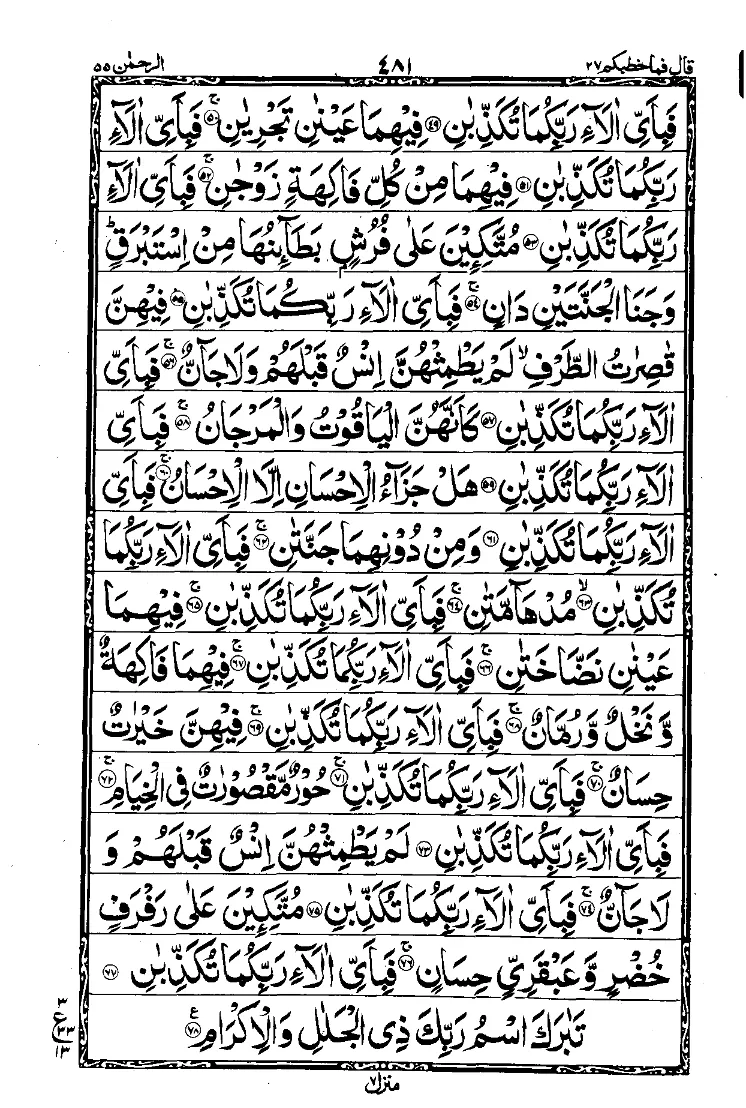 قال فما خطبكم ٢٧ ٤٨١ الرحمٰن ٥٥
فَبِاَىِّ اٰلَآءِ رَبِّكُمَا تُكَذِّبٰنِ ﴿٤٩﴾ فِيْهِمَا عَيْنٰنِ تَجْرِيٰنِ ﴿٥٠﴾ۚ فَبِاَىِّ اٰلَآءِ
رَبِّكُمَا تُكَذِّبٰنِ ﴿٥١﴾ فِيْهِمَا مِنْ كُلِّ فَاكِهَةٍ زَوْجٰنِ ﴿٥٢﴾ۚ فَبِاَىِّ اٰلَآءِ
رَبِّكُمَا تُكَذِّبٰنِ ﴿٥٣﴾ مُتَّكِـِٕيْنَ عَلٰى فُرُشٍۭ بَطَآىِٕنُهَا مِنْ اِسْتَبْرَقٍؕ
وَجَنَا الْجَنَّتَيْنِ دَانٍ ﴿٥٤﴾ۚ فَبِاَىِّ اٰلَآءِ رَبِّكُمَا تُكَذِّبٰنِ ﴿٥٥﴾ فِيْهِنَّ
قٰصِرٰتُ الطَّرْفِۙ لَمْ يَطْمِثْهُنَّ اِنْسٌ قَبْلَهُمْ وَلَا جَآنٌّ ﴿٥٦﴾ۚ فَبِاَىِّ
اٰلَآءِ رَبِّكُمَا تُكَذِّبٰنِ ﴿٥٧﴾ كَاَنَّهُنَّ الْيَاقُوْتُ وَالْمَرْجَانُ ﴿٥٨﴾ۚ فَبِاَىِّ
اٰلَآءِ رَبِّكُمَا تُكَذِّبٰنِ ﴿٥٩﴾ هَلْ جَزَآءُ الْاِحْسَانِ اِلَّا الْاِحْسَانُ ﴿٦٠﴾ۚ فَبِاَىِّ
اٰلَآءِ رَبِّكُمَا تُكَذِّبٰنِ ﴿٦١﴾ وَمِنْ دُوْنِهِمَا جَنَّتٰنِ ﴿٦٢﴾ۚ فَبِاَىِّ اٰلَآءِ رَبِّكُمَا
تُكَذِّبٰنِ ﴿٦٣﴾ۙ مُدْهَآمَّتٰنِ ﴿٦٤﴾ۚ فَبِاَىِّ اٰلَآءِ رَبِّكُمَا تُكَذِّبٰنِ ﴿٦٥﴾ۚ فِيْهِمَا
عَيْنٰنِ نَضَّاخَتٰنِ ﴿٦٦﴾ۚ فَبِاَىِّ اٰلَآءِ رَبِّكُمَا تُكَذِّبٰنِ ﴿٦٧﴾ۚ فِيْهِمَا فَاكِهَةٌ
وَّنَخْلٌ وَّرُمَّانٌ ﴿٦٨﴾ۚ فَبِاَىِّ اٰلَآءِ رَبِّكُمَا تُكَذِّبٰنِ ﴿٦٩﴾ۚ فِيْهِنَّ خَيْرٰتٌ
حِسَانٌ ﴿٧٠﴾ۚ فَبِاَىِّ اٰلَآءِ رَبِّكُمَا تُكَذِّبٰنِ ﴿٧١﴾ۚ حُوْرٌ مَّقْصُوْرٰتٌ فِى الْخِيَامِ ﴿٧٢﴾ۚ
فَبِاَىِّ اٰلَآءِ رَبِّكُمَا تُكَذِّبٰنِ ﴿٧٣﴾ لَمْ يَطْمِثْهُنَّ اِنْسٌ قَبْلَهُمْ وَ
لَا جَآنٌّ ﴿٧٤﴾ۚ فَبِاَىِّ اٰلَآءِ رَبِّكُمَا تُكَذِّبٰنِ ﴿٧٥﴾ مُتَّكِـِٕيْنَ عَلٰى رَفْرَفٍ
خُضْرٍ وَّعَبْقَرِىٍّ حِسَانٍ ﴿٧٦﴾ۚ فَبِاَىِّ اٰلَآءِ رَبِّكُمَا تُكَذِّبٰنِ ﴿٧٧﴾
تَبٰرَكَ اسْمُ رَبِّكَ ذِى الْجَلٰلِ وَالْاِكْرَامِ ﴿٧٨﴾ع
٣
ع ٣٣
١٣
منزل ٧